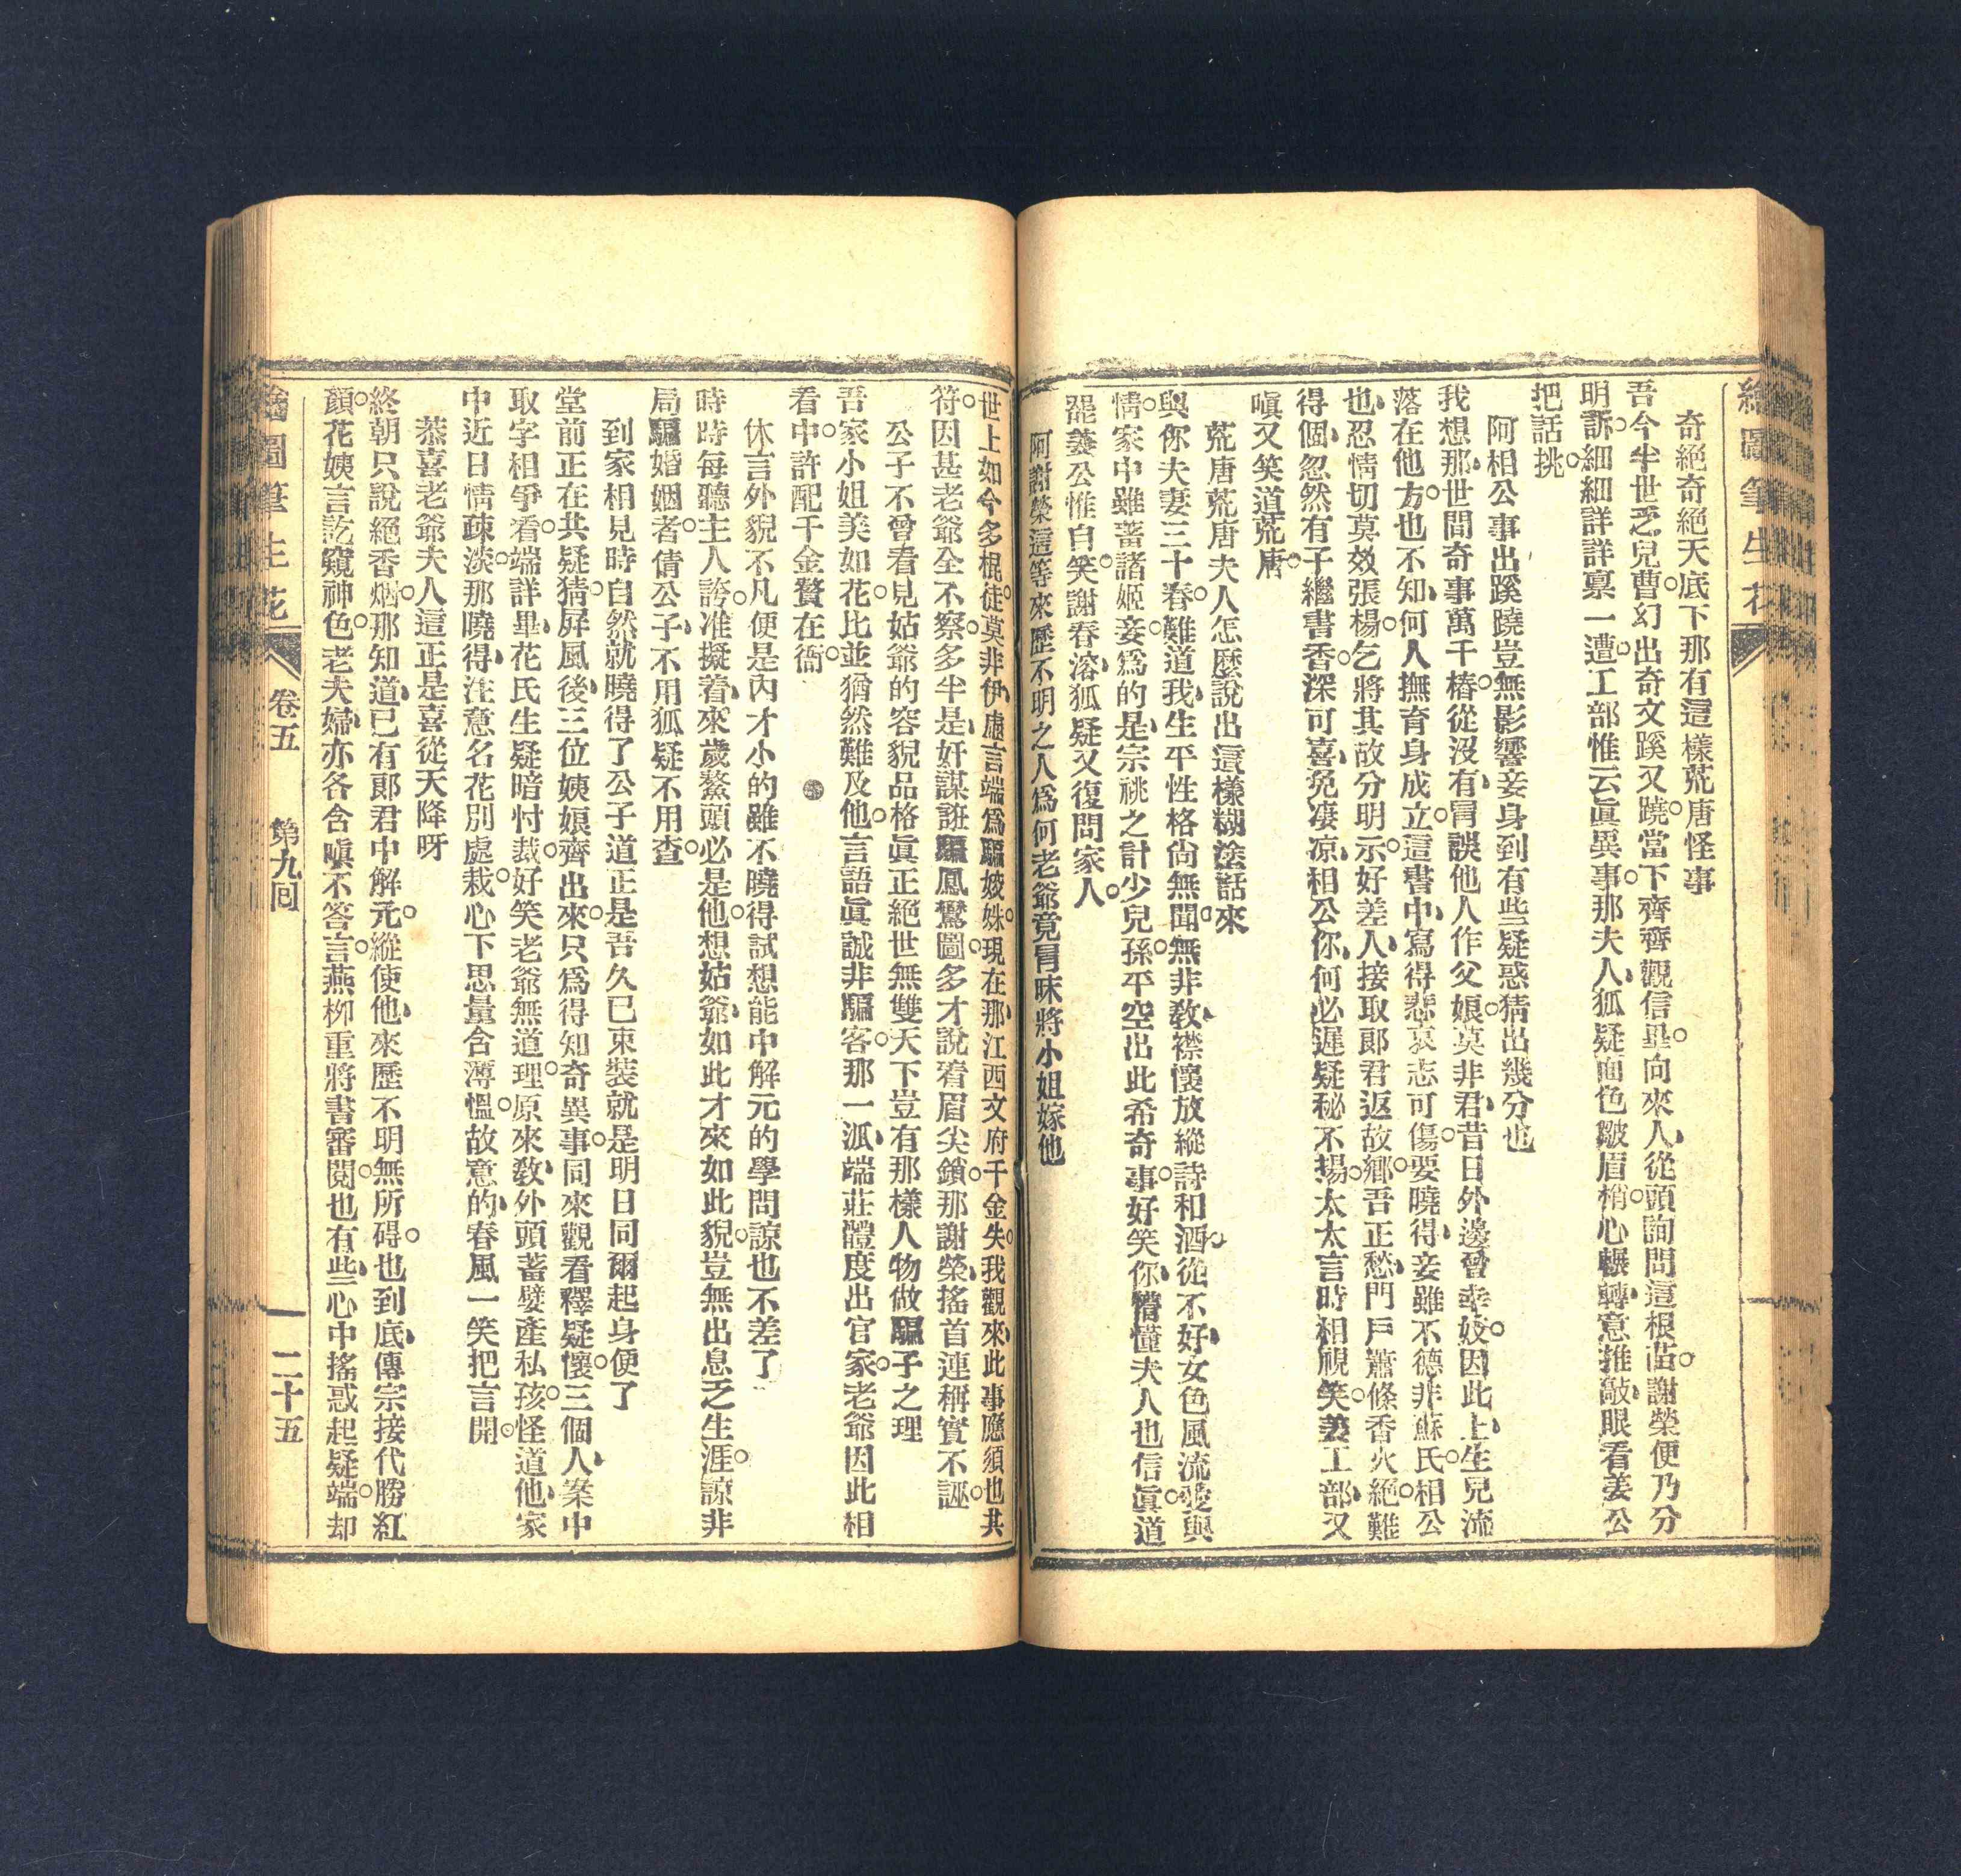 繪圖筆生花
奇絕奇絕天底下那有這樣荒唐怪事
吾今半世乏兒曹幻出奇文蹊又蹺當下齊齊觀信畢向來人從頭詢問這根苗謝榮便乃分
明訴細細詳詳稟一遭工部惟云眞異事那夫人狐疑面色皺眉梢心輾轉意推敲眼看姜公
把話挑
阿相公事出蹊蹺豈無影響妾身到有些疑惑猜出幾分也
我想那世間奇事萬千樁從沒有冐誤他人作父娘莫非君昔日外邊曾幸妓因此上生兒流
落在他方也不知何人撫育身成立這書中寫得悲哀志可傷要曉得妾雖不德非蘇氏相公
也忍情切莫效張楊乞將其故分明示好差人接取郎君返故鄉吾正愁門戶蕭條香火絕難
得個忽然有子繼書香深可喜免凄凉相公你何必遲疑秘不揚太太言時相視笑姜工部又
嗔又笑道荒唐
荒唐荒唐夫人怎麽說出這樣糊塗話來
與你夫妻三十春難道我生平性格尙無聞無非敎襟懷放縱詩和酒從不好女色風流愛與
情家中雖蓄諸姬妾爲的是宗祧之計少兒孫平空出此希奇事好笑你懵懂夫人也信眞道
罷姜公惟自笑謝春溶狐疑又復問家人
阿謝榮這等來歷不明之人爲何老爺竟冐昧將小姐嫁他
世上如今多棍徒莫非伊虛言端爲騙姣姝現在那江西文府千金失我觀來此事應須也共
符因甚老爺全不察多半是奸謀誑騙鳳鸞圖多才說宥眉尖鎖那謝榮搖首連稱實不誣
公子不曾看見姑爺的容貌品格眞正絕世無雙天下豈有那樣人物做騙子之理
吾家小姐美如花比並猶然難及他言語眞誠非騙客那一派端莊體度出官家老爺因此相
看中許配千金贅在衙
休言外貌不凡便是內才小的雖不曉得試想能中解元的學問諒也不差了
時時每聽主人誇准擬着來歲鰲頭必是他想姑爺如此才來如此貌豈無出息乏生涯諒非
局騙婚姻者倩公子不用狐疑不用查
到家相見時自然就曉得了公子道正是吾久已束裝就是明日同爾起身便了
堂前正在共疑猜屛風後三位姨娘齊出來只爲得知奇異事同來觀看釋疑懷三個人案中
取字相爭看端詳畢花氏生疑暗忖裁好笑老爺無道理原來敎外頭蓄嬖產私孩怪道他家
中近日情疎淡那曉得注意名花別處栽心下思量含薄慍故意的春風一笑把言開
恭喜老爺夫人這正是喜從天降呀
終朝只說絕香烟那知道已有郎君中解元縱使他來歷不明無所碍也到底傳宗接代勝紅
顏花姨言訖窺神色老夫婦亦各含嗔不答言燕柳重將書審閱也有些心中搖惑起疑端却
繪圖筆生花
卷五
第九回
二十五